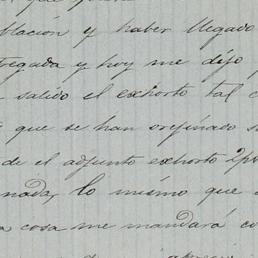 blacion y haber llegado
tregada y hoy me dijo
salido el exhorto tal c
que se han orijinado s
de el adjunto exhorto 2p
nada, lo mismo que
a cosa me mandará co